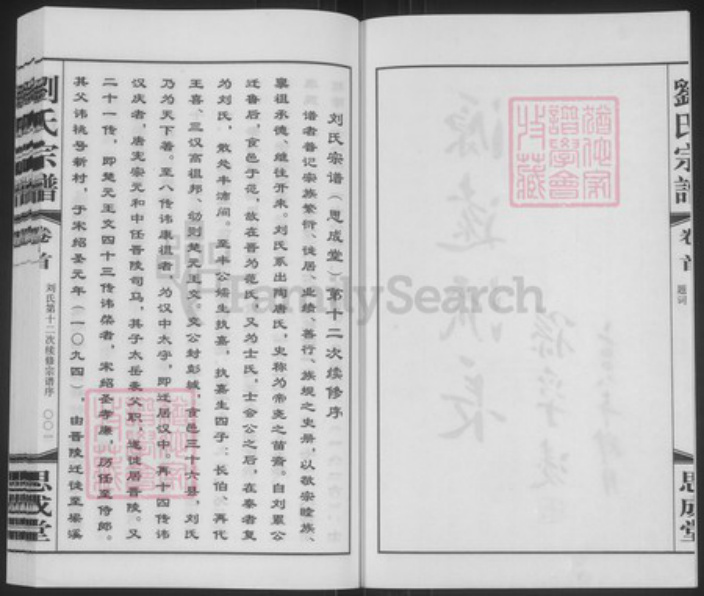 劉氏宗譜
卷首
題词
思成堂
源遠流長
刘氏宗谱（思成堂）第十二次续修序
谱者普记宗族繁衍、徙居、业绩、善行、族规之史册，以敬宗睦族、
禀祖承德、继往开来。刘氏系出陶唐氏，史称为帝尧之苗裔。自刘累公
迁鲁后，食邑于范，故在晋为范氏，又为士氏，士会公之后，在秦者复
为刘氏，散处丰沛间。至丰公煓生执嘉，执嘉生四子：长伯、再代
王喜、三汉高祖邦、幼则楚元王交。交公封彭城，食邑三十六县，刘氏
乃为天下著。至八传讳康祖者，为汉中太守，即迁居汉中。再十四传讳
汉庆者，唐宪宗元和中任晋陵司马，其子太岳袭父职，遂徙居晋陵。又
二十一传，即楚元王交四十三传讳荣者，宋绍圣孝廉，历任至侍郎。
其父讳桃号新村，于宋绍圣元年（一〇九四），由晋陵迁徙至梁溪
劉氏宗譜
卷首
刘氏第十二次续修宗谱序
〇〇一
思成堂
FamilySearch